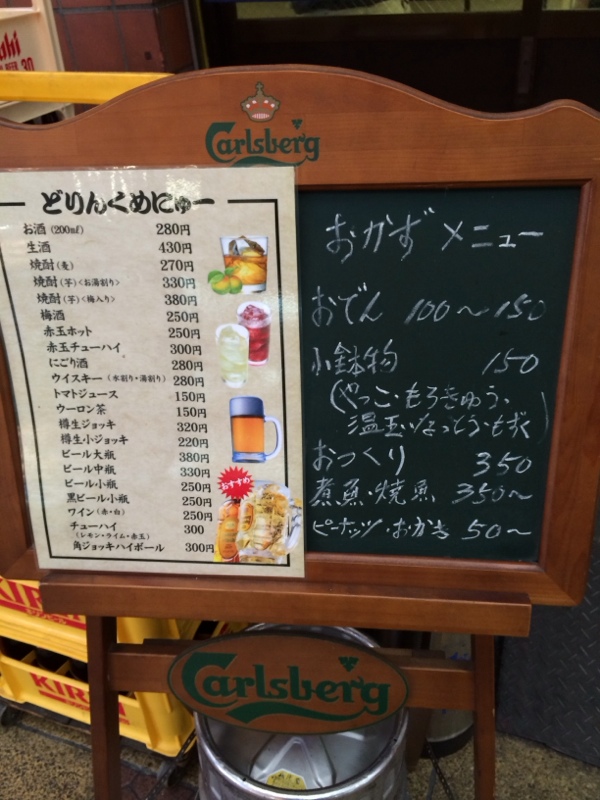 Asahi
BEER 30
Carlsberg
どりんくめにゅー
お酒(200ml) 280円
生酒 430円
焼酎(麦) 270円
焼酎(芋)<お湯割り> 330円
焼酎(芋)<梅入り> 380円
梅酒 250円
赤玉ホット 250円
赤玉チューハイ 300円
にごり酒 280円
ウイスキー(水割り・湯割り) 280円
トマトジュース 150円
ウーロン茶 150円
樽生ジョッキ 320円
樽生小ジョッキ 220円
ビール大瓶 380円
ビール中瓶 330円
ビール小瓶 250円
黒ビール小瓶 250円
ワイン(赤・白) 250円
チューハイ 300
(レモン・ライム・赤玉)
角ジョッキハイボール 300円
おすすめ!
おかずメニュー
おでん 100〜150
小鉢物 150
(やっこ・もろきゅう、
温玉・なっとう・もずく)
おつくり 350
煮魚・焼魚 350〜
ピーナッツ・おかき 50〜
KIRIN
KIRIN
Carlsberg